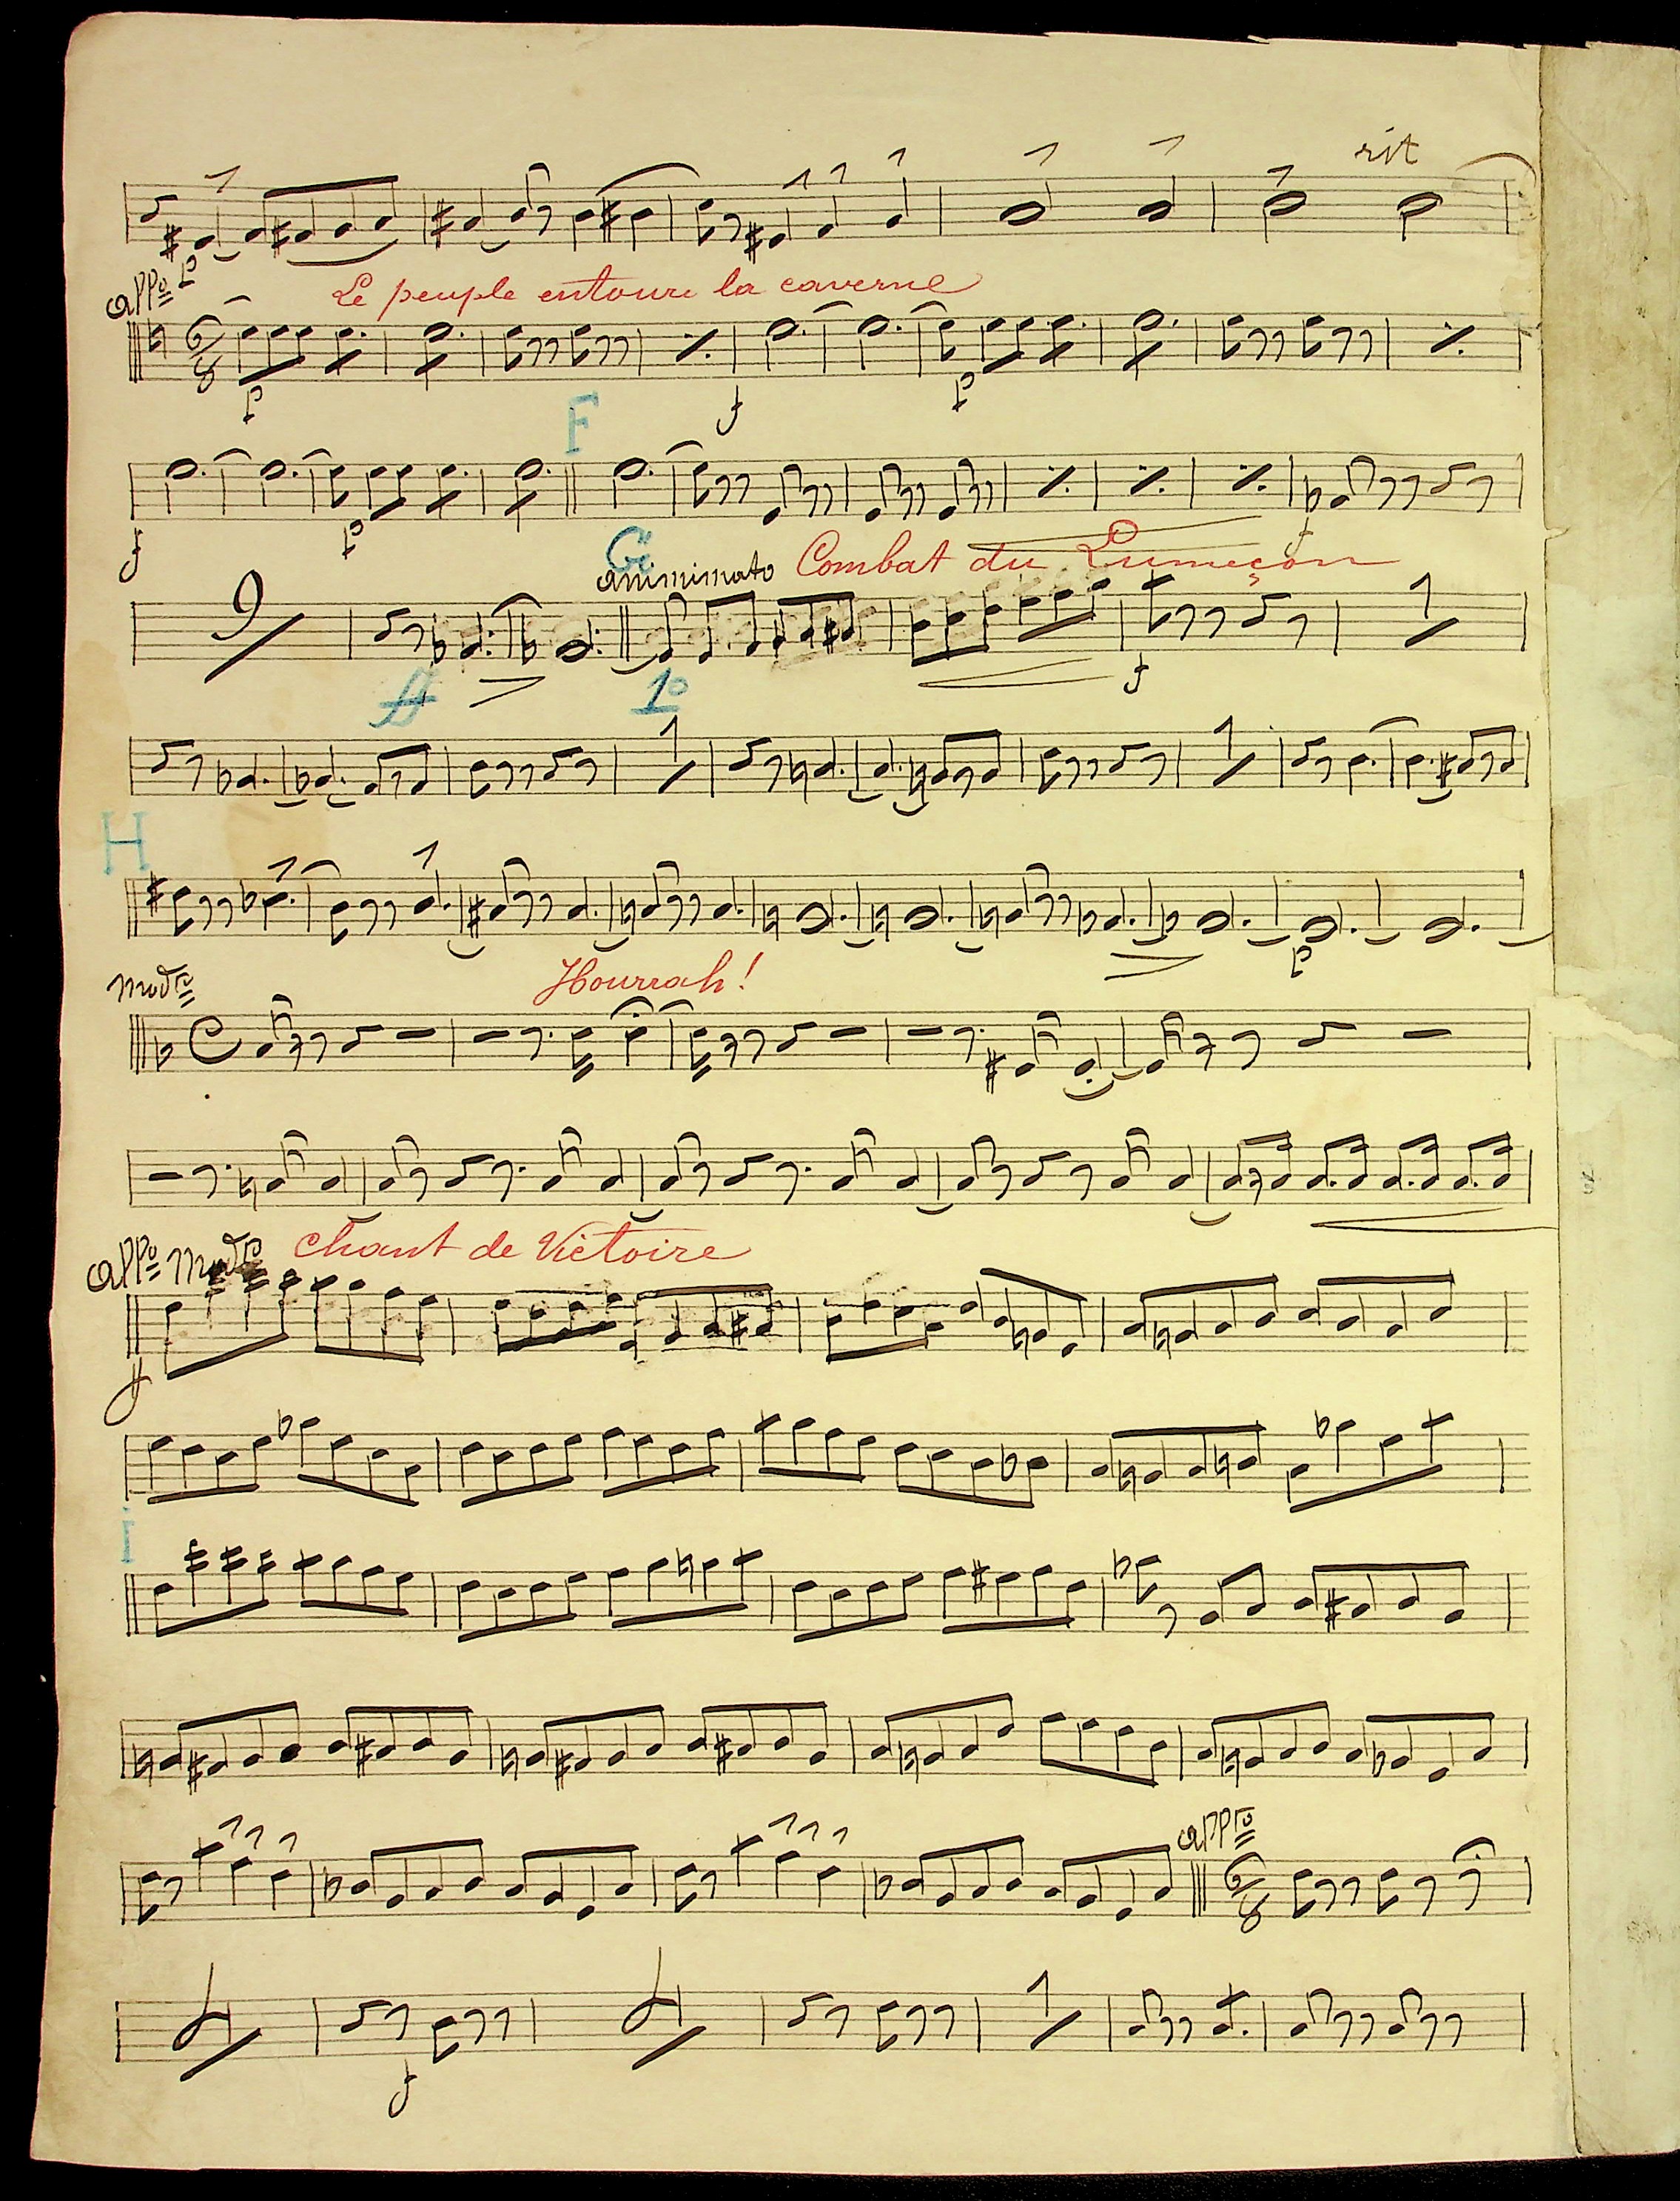 rit
allº p
Le peuple entoure la caverne
6/8
p f p
F
f p f
G
animmato Combat du Lumeçon
9
1
ff 1º f
1 1
H
p
Modto
Hourrah!
C
allº Modto Chant de Victoire
f
I
allto
6/8
4 4 1
f